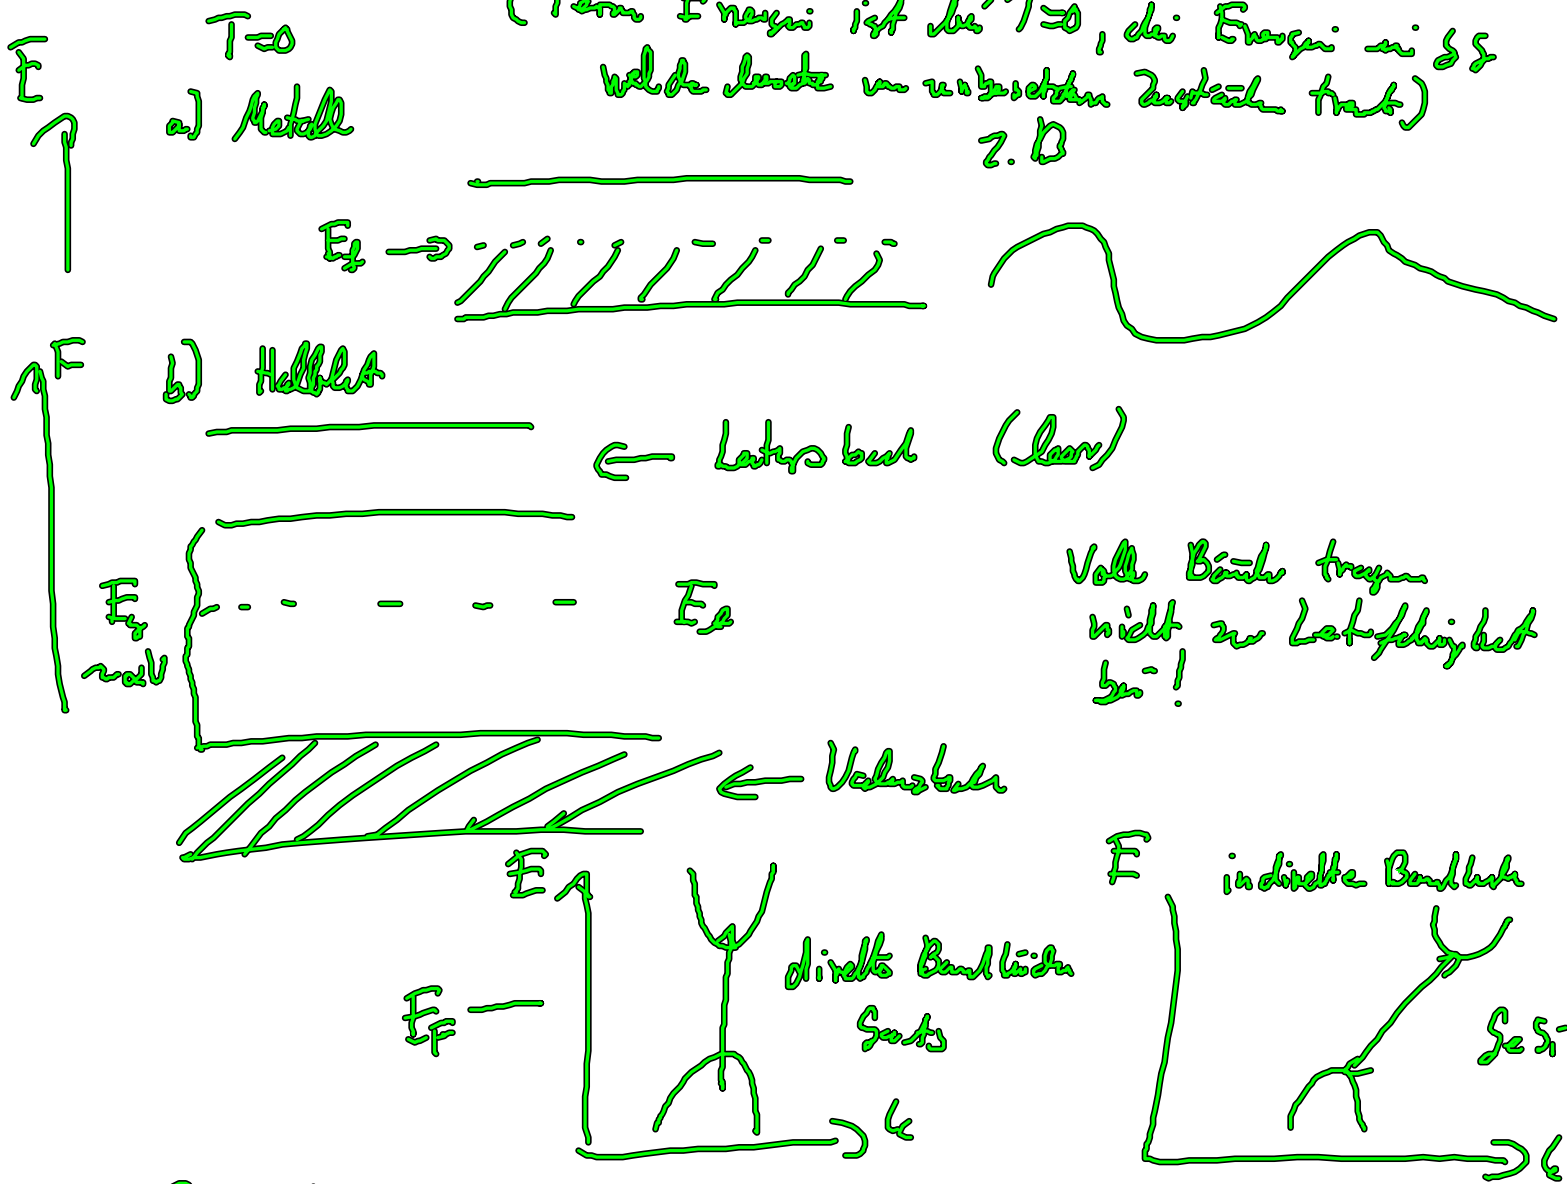 T=0
(Fermi Energie ist bei T=0, die Energie
welche besetzte von unbesetzten Zuständen trennt)
E
a) Metall
z.B
E_f →
E
b) Halbleit
← Leitungsband (leer)
E_g
E_f
~eV
Volle Bänder tragen
nicht zur Leitfähigkeit
bei!
← Valenzband
E
E
indirekte Bandlücke
direkte Bandlücke
E_F
GaAs
Ge Si
k
k